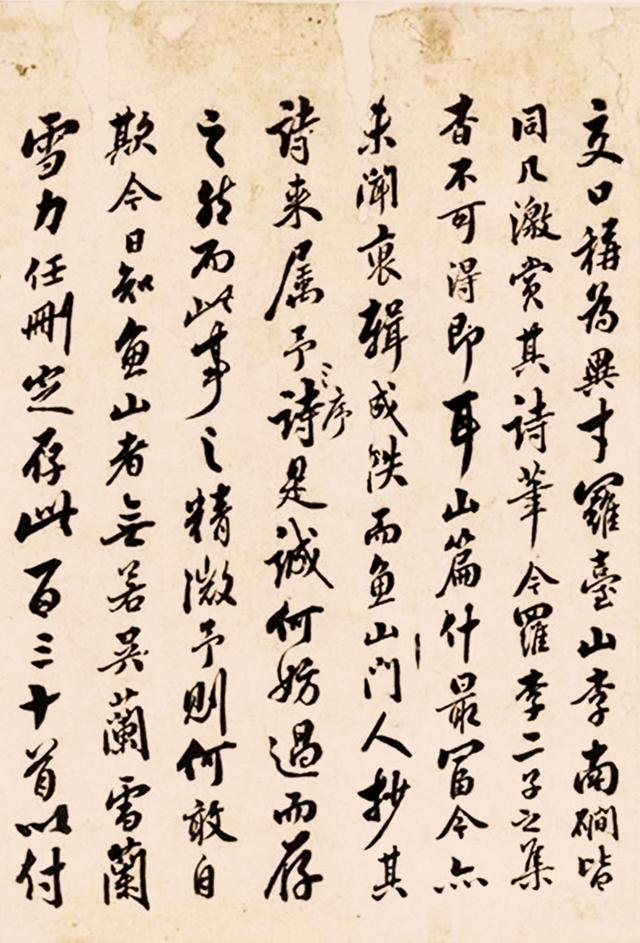 交口稱為異才羅臺山李南磵皆
同几激賞其詩筆今羅李二子之集
杳不可得即耳山篇什最富今亦
未聞裒輯成帙而魚山門人抄其
詩来属予序之詩是誠何妨過而存
之然而此事之精微予則何敢自
欺今日知魚山者無若吳蘭雪蘭
雪力任刪定存此百三十首以付